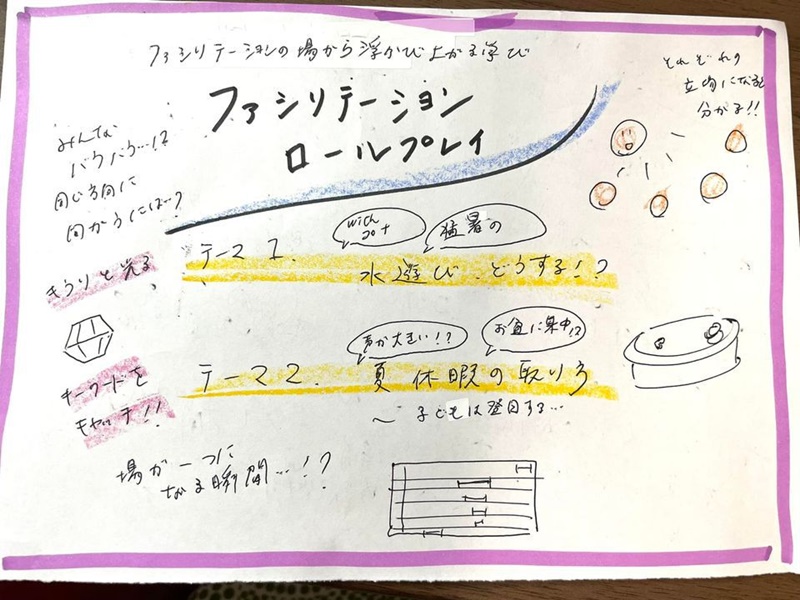 ファシリテーションの場から浮かび上がる学び
ファシリテーション
ロールプレイ
それぞれの
立場になると
分かる!!
みんな
バラバラ…!?
同じ方向に
向かうには…?
きらりと光る
キーワードを
キャッチ!!
with
コロナ
猛暑の
テーマ 1.
水遊び、どうする!?
声が大きい!?
お盆に集中!?
テーマ 2.
夏休暇の取り方
～ 子どもは登園する…
場が一つに
なる瞬間…!?